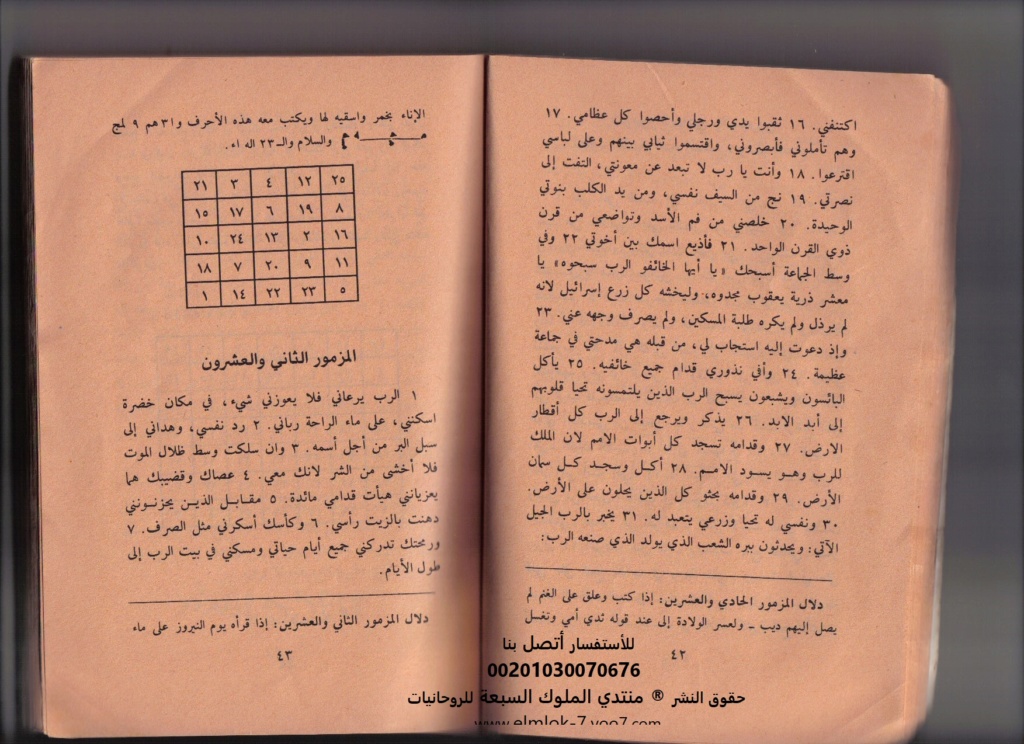 اكتنفني. ١٦ ثقبوا يدي ورجلي وأحصوا كل عظامي. ١٧
وهم تأملوني فأبصروني، واقتسموا ثيابي بينهم وعلى لباسي
اقترعوا. ١٨ وأنت يا رب لا تبعد عن معونتي، التفت إلى
نصرتي. ١٩ نج من السيف نفسي، ومن يد الكلب بنوتي
الوحيدة. ٢٠ خلصني من فم الأسد وتواضعي من قرن
ذوي القرن الواحد. ٢١ فأذيع اسمك بين أخوتي ٢٢ وفي
وسط الجماعة أسبحك «يا أيها الخائفو الرب سبحوه» يا
معشر ذرية يعقوب مجدوه، وليخشه كل زرع إسرائيل لانه
لم يرذل ولم يكره طلبة المسكين، ولم يصرف وجهه عني. ٢٣
وإذ دعوت إليه استجاب لي، من قبله هي مدحتي في جماعة
عظيمة. ٢٤ وأفي نذوري قدام جميع خائفيه. ٢٥ يأكل
البائسون ويشبعون يسبح الرب الذين يلتمسونه تحيا قلوبهم
إلى أبد الابد. ٢٦ يذكر ويرجع إلى الرب كل أقطار
الارض. ٢٧ وقدامه تسجد كل أبوات الامم لان الملك
للرب وهو يسود الامم. ٢٨ أكل وسجد كل سمان
الأرض. ٢٩ وقدامه بحثو كل الذين يحلون على الأرض.
٣٠ ونفسي له تحيا وزرعي يتعبد له. ٣١ يخبر بالرب الجيل
الآتي: ويحدثون ببره الشعب الذي يولد الذي صنعه الرب:
دلال المزمور الحادي والعشرين: إذا كتب وعلق على الغنم لم
يصل إليهم ديب ـ ولعسر الولادة إلى عند قوله ثدي أمي وتغسل
٤٢
الإناء بخمر واسقيه لها ويكتب معه هذه الأحرف و٣١هم ٩ لمج
والسلام والـ ٢٣ اله اء.
٢١ ٣ ٤ ١٢ ٢٥
١٥ ١٧ ٦ ١٩ ٨
١٠ ٢٤ ١٣ ٢ ١٦
١٨ ٧ ٢٠ ٩ ١١
١ ١٤ ٢٢ ٢٣ ٥
المزمور الثاني والعشرون
١ الرب يرعاني فلا يعوزني شيء، في مكان خضرة
اسكنني، على ماء الراحة رباني. ٢ رد نفسي، وهداني إلى
سبل البر من أجل أسمه. ٣ وان سلكت وسط ظلال الموت
فلا أخشى من الشر لانك معي. ٤ عصاك وقضيبك هما
يعزيانني هيأت قدامي مائدة. ٥ مقابل الذين يحزنونني
دهنت بالزيت رأسي. ٦ وكأسك أسكرني مثل الصرف. ٧
ورحمتك تدركني جميع أيام حياتي ومسكني في بيت الرب إلى
طول الأيام.
دلال المزمور الثاني والعشرين: إذا قرأه يوم النيروز على ماء
٤٣
للأستفسار أتصل بنا
00201030070676
حقوق النشر ® منتدي الملوك السبعة للروحانيات
www.elmlok-7.yoo7.com